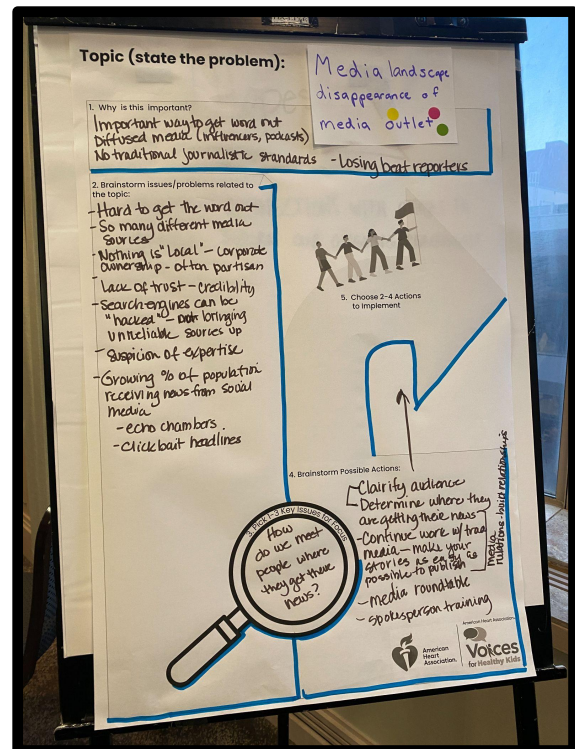 Topic (state the problem):
Media landscape
disappearance of
media outlet
1. Why is this important?
Important way to get word out
Diffused media (influencers, podcasts)
No traditional journalistic standards - Losing beat reporters
2. Brainstorm issues/problems related to
the topic:
- Hard to get the word out
- So many different media
sources
- Nothing is "local" - corporate
ownership - often partisan
- Lack of trust - credibility
- Search engines can be
"hacked" - bringing
unreliable sources up
- Suspicion of expertise
- Growing % of population
receiving news from social
media
- echo chambers
- Clickbait headlines
3. Pick 1-3 Key Issues for Focus
How
do we meet
people where
they get there
news?
4. Brainstorm Possible Actions:
Clairify audience
Determine where they
are getting their news
- Continue work w/ trad
media - make your
stories as easy as
possible to publish
- media roundtable
- spokesperson training
media
relations - build relationships
5. Choose 2-4 Actions
to Implement
American
Heart
Association.
American Heart Association.
Voices
for Healthy Kids